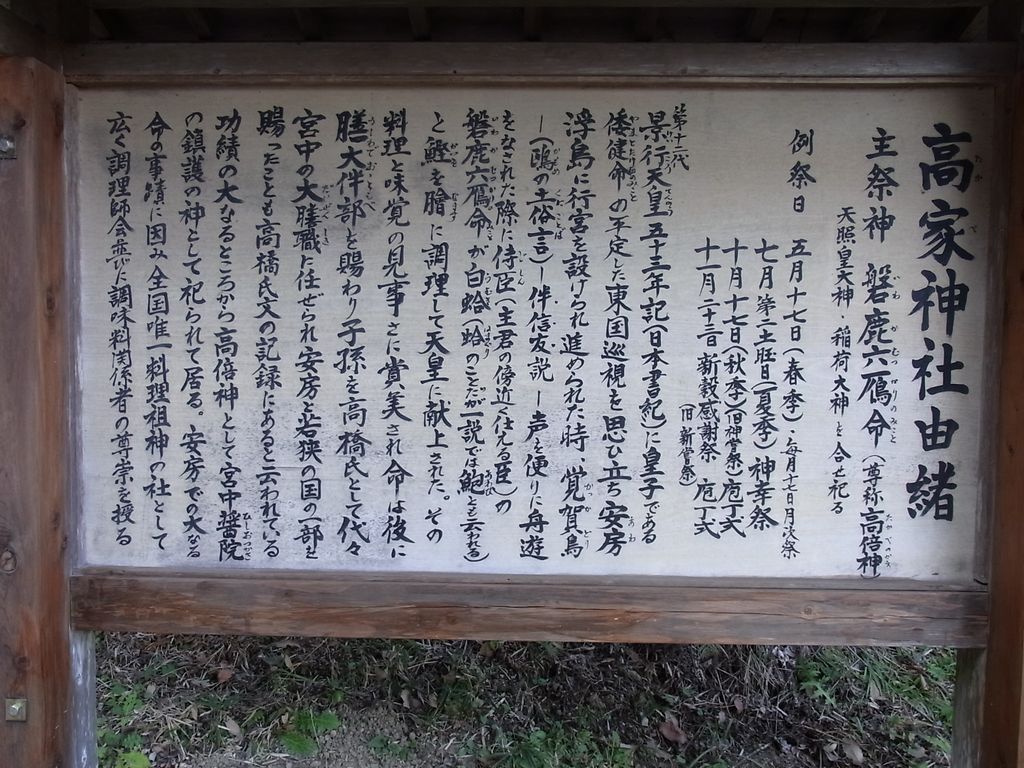 高家神社由緒
主祭神 磐鹿六鴈命（尊称高倍神）
天照皇大神・稲荷大神を合せ祀る
例祭日 五月十七日（春季）・毎月十七日月次祭
七月第一土旺日（夏季）神幸祭
十月十七日（秋季）（旧神嘗祭）庖丁式
十一月二十三日 新穀感謝祭 庖丁式
旧新嘗祭）
第十二代
景行天皇五十三年記（日本書紀）に皇子である
倭健命の平定した東国巡視を思ひ立ち安房
浮島に行宮を設けられ進められた時、覚賀鳥
―（鴎の土俗言）―伴信友説―声を便りに舟遊
をなされた際に侍臣（主君の傍近く仕える臣）の
磐鹿六鴈命が白蛤（蛤のことだが一説では鮑とも云われる）
と鰹を膾に調理して天皇に献上された。その
料理と味覚の見事さに賞美され命は後に
膳大伴部を賜わり子孫を高橋氏として代々
宮中の大膳職に任ぜられ安房と若狭の国の一部を
賜ったことも高橋氏文の記録にあると云われている
功績の大なるところから高倍神として宮中醤院
の鎮護の神として祀られて居る。安房での大なる
命の事蹟に因み全国唯一料理祖神の社として
広く調理師会並びに調味料関係者の尊崇を授る